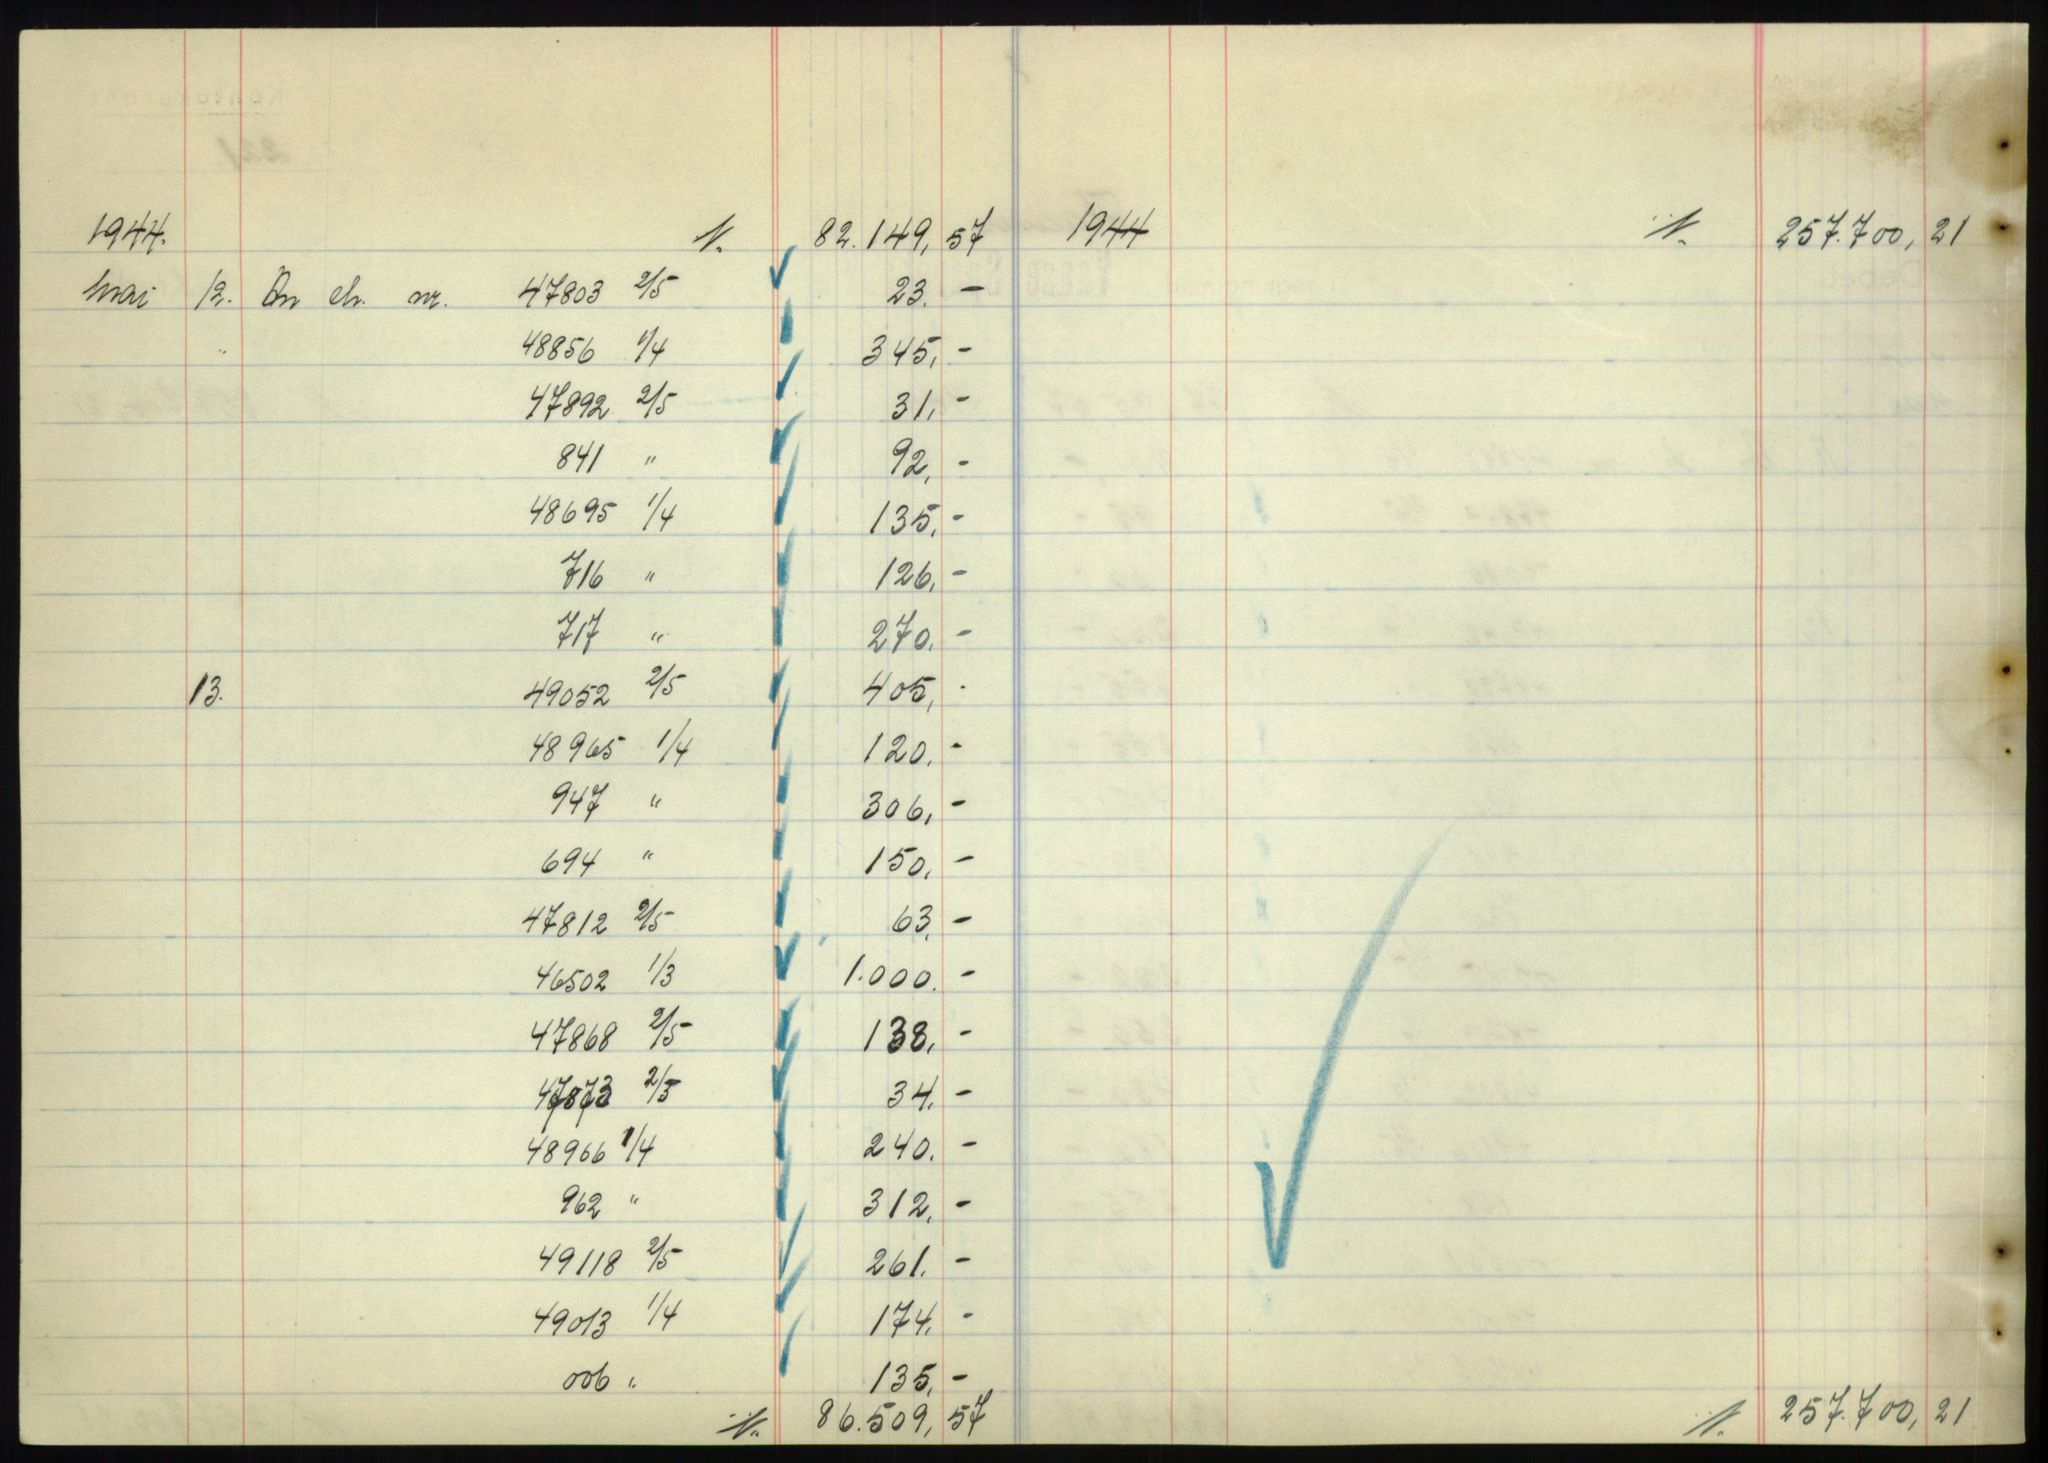 1944. ·/. 82.149,57 1944 ·/. 257.700,21
Mai 12. An ch. nr. 47803 2/5 23. -
" 48856 1/4 345, -
47892 2/5 31, -
841 " 92, -
48695 1/4 135, -
716 " 126, -
717 " 270. -
13. 49052 2/5 405, -
48965 1/4 120. -
947 " 306, -
694 " 150. -
47812 2/5 63, -
46502 1/3 1.000. -
47868 2/5 138, -
47873 2/5 34. -
48966 1/4 240. -
962 " 312, -
49118 2/5 261. -
49013 1/4 174. -
006 " 135, -
·/. 86.509,57 ·/. 257.700,21